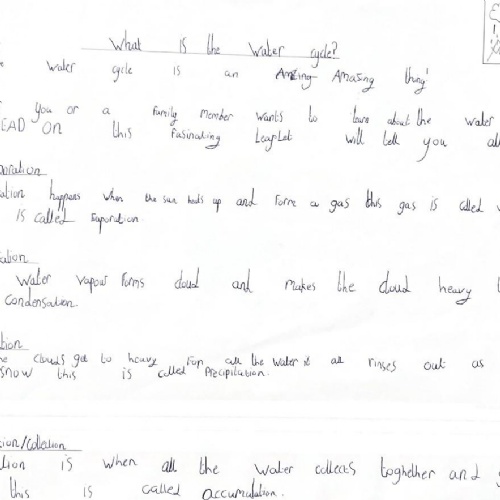 What is the water cycle?
water cycle is an Amazing thing!
You or a Family member wants to learn about the water
EAD ON this fasinating Leaflet will tell you all
poration
ation happens when the sun heats up and forms a gas this gas is called
is called Evaporation.
ation
Water vapour forms cloud and makes the cloud heavy
condensation.
tion
clouds get to heavy for all the water all rinses out as
snow this is called Precipitation.
tion/Collection
tion is when all the water collects toghether and
this is called accumulation.